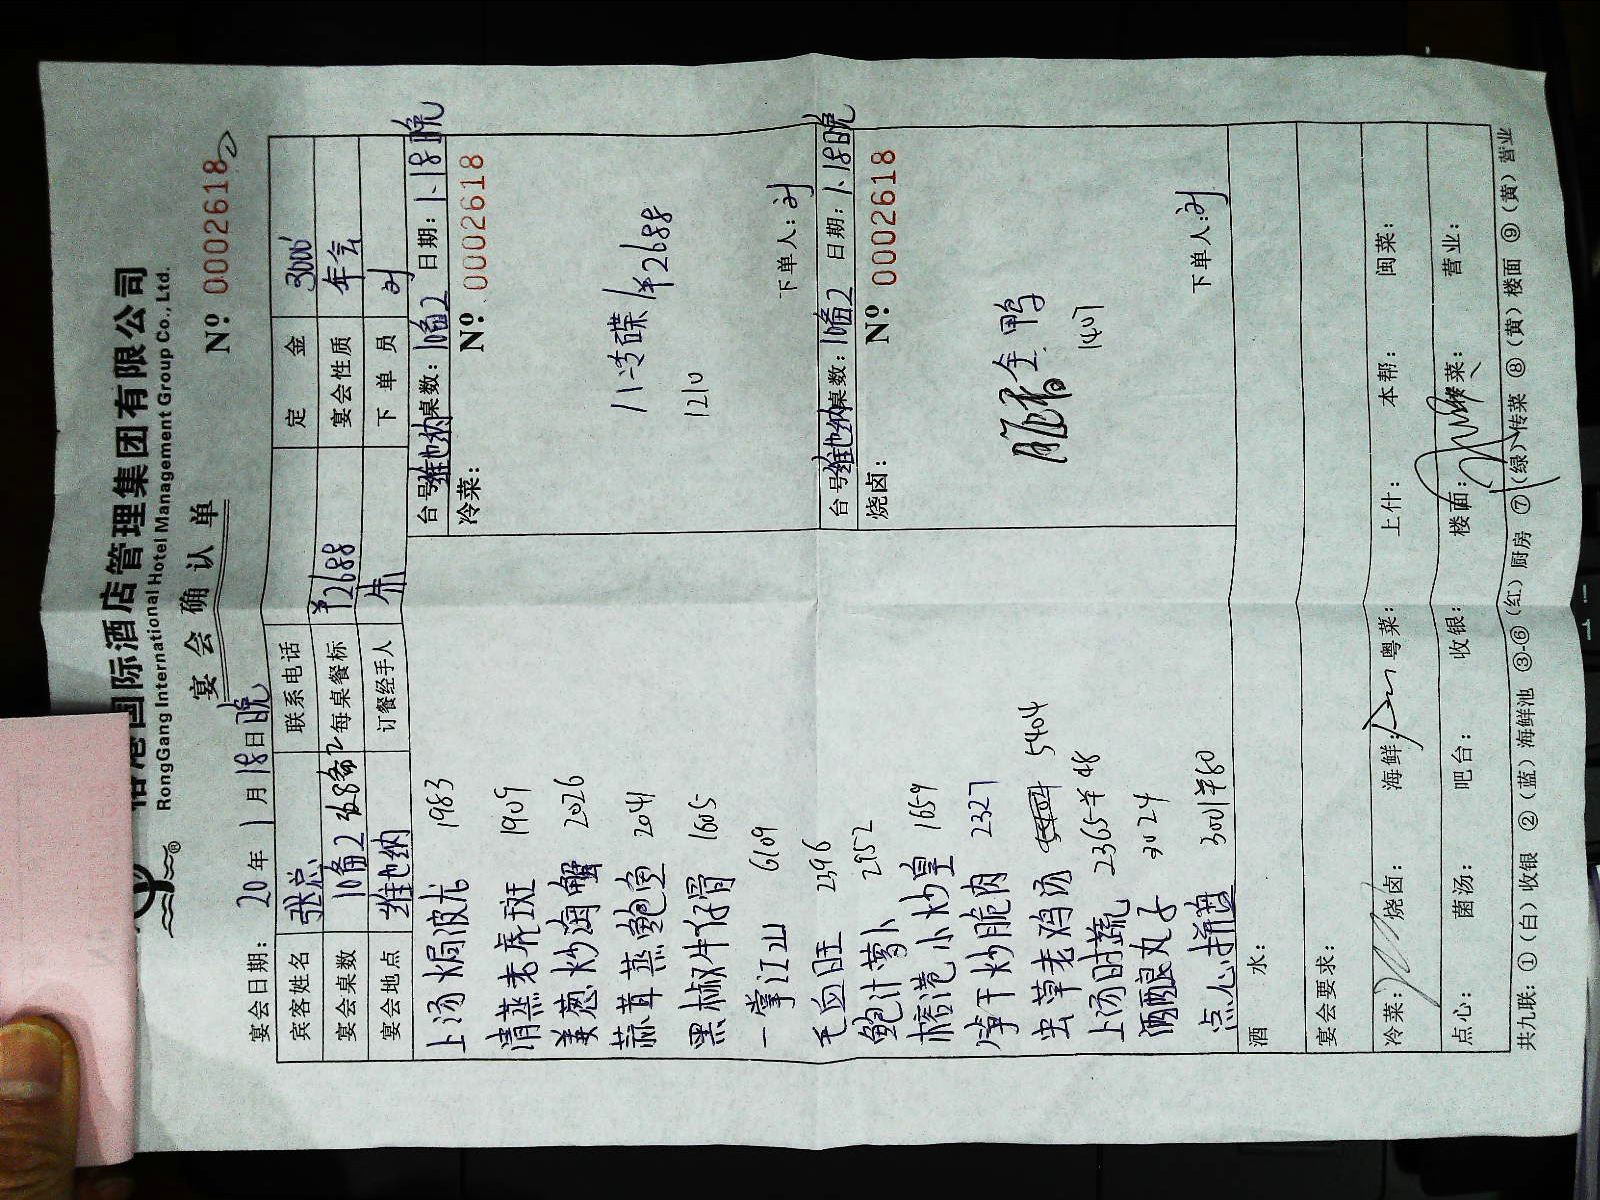 榕港国际酒店管理集团有限公司
RongGang International Hotel Management Group Co., Ltd.
宴会确认单
Nº: 0002618
宴会日期: 20 年 1 月 18 日 晚
宾客姓名 张总 联系电话 定金 3000
宴会桌数 10备2 每桌餐标 ¥2688 宴会性质 年会
宴会地点 维也纳 订餐经手人 朱 下单员 刘
上汤焗波龙 1983
清蒸老虎斑 1909
姜葱炒海蟹 2026
蒜茸蒸鲍鱼 2041
黑椒牛仔骨 1605
一掌江山 6109
毛血旺 2396
鲍汁萝卜 2952
榕港小炒皇 1659
笋干炒脆肉 2327
虫草老鸡汤 5404
上汤时蔬 2365 ¥48
酒酿丸子 3024
点心拼盘 3001 ¥80
台号: 维也纳 桌数: 10备2 日期: 1.18晚
冷菜: Nº: 0002618
八冷碟 / ¥2688
1210
下单人: 刘
台号: 维也纳 桌数: 10备2 日期: 1.18晚
烧卤: Nº: 0002618
全鸭
1407
下单人: 刘
酒水:
宴会要求:
冷菜: 烧卤: 海鲜: 粤菜: 上什: 本帮: 闽菜:
点心: 菌汤: 吧台: 收银: 楼面: 菜: 营业:
共九联: ①(白)收银 ②(蓝)海鲜池 ③-⑥(红)厨房 ⑦(绿)传菜 ⑧(黄)楼面 ⑨(黄)营业